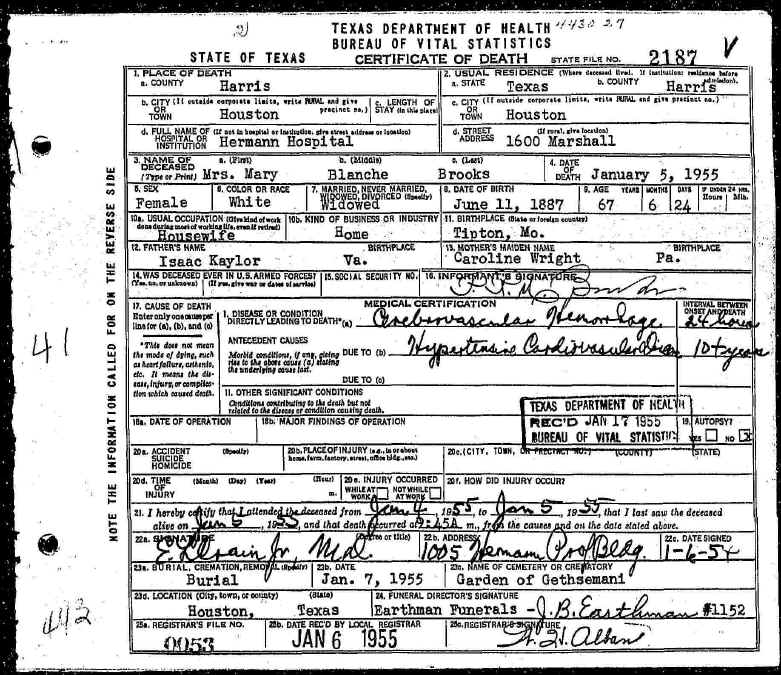 2)
TEXAS DEPARTMENT OF HEALTH 4430 27
BUREAU OF VITAL STATISTICS
STATE OF TEXAS CERTIFICATE OF DEATH STATE FILE NO. 2187 V
1. PLACE OF DEATH
a. COUNTY Harris
2. USUAL RESIDENCE (Where deceased lived. If institution: residence before admission).
a. STATE Texas b. COUNTY Harris
b. CITY (If outside corporate limits, write RURAL and give precinct no.) OR TOWN Houston
c. LENGTH OF STAY (in this place)
c. CITY (If outside corporate limits, write RURAL and give precinct no.) OR TOWN Houston
d. FULL NAME OF (If not in hospital or institution, give street address or location) HOSPITAL OR INSTITUTION Hermann Hospital
d. STREET ADDRESS (If rural, give location) 1600 Marshall
3. NAME OF DECEASED (Type or Print) a. (First) Mrs. Mary b. (Middle) Blanche c. (Last) Brooks
4. DATE OF DEATH January 5, 1955
5. SEX Female
6. COLOR OR RACE White
7. MARRIED, NEVER MARRIED, WIDOWED, DIVORCED (Specify) Widowed
8. DATE OF BIRTH June 11, 1887
9. AGE YEARS 67 MONTHS 6 DAYS 24 IF UNDER 24 HRS. Hours Min.
10a. USUAL OCCUPATION (Give kind of work done during most of working life, even if retired) Housewife
10b. KIND OF BUSINESS OR INDUSTRY Home
11. BIRTHPLACE (State or foreign country) Tipton, Mo.
12. FATHER'S NAME Isaac Kaylor BIRTHPLACE Va.
13. MOTHER'S MAIDEN NAME Caroline Wright BIRTHPLACE Pa.
14. WAS DECEASED EVER IN U.S. ARMED FORCES? (Yes, no, or unknown) (If yes, give war or dates of service)
15. SOCIAL SECURITY NO.
16. INFORMANT'S SIGNATURE
MEDICAL CERTIFICATION
INTERVAL BETWEEN ONSET AND DEATH
17. CAUSE OF DEATH
Enter only one cause per line for (a), (b), and (c)
*This does not mean the mode of dying, such as heart failure, asthenia, etc. It means the disease, injury, or complication which caused death.
I. DISEASE OR CONDITION DIRECTLY LEADING TO DEATH* (a) Cerebrovascular Hemorrhage 24 hours
ANTECEDENT CAUSES
Morbid conditions, if any, giving rise to the above cause (a) stating the underlying cause last.
DUE TO (b) Hypertensive Cardiovascular 10+ years
DUE TO (c)
II. OTHER SIGNIFICANT CONDITIONS
Conditions contributing to the death but not related to the disease or condition causing death.
TEXAS DEPARTMENT OF HEALTH
REC'D JAN 17 1955
BUREAU OF VITAL STATISTICS
18a. DATE OF OPERATION
18b. MAJOR FINDINGS OF OPERATION
19. AUTOPSY? YES NO X
20a. ACCIDENT SUICIDE HOMICIDE (Specify)
20b. PLACE OF INJURY (e.g., in or about home, farm, factory, street, office bldg., etc.)
20c. (CITY, TOWN, OR PRECINCT NO.) (COUNTY) (STATE)
20d. TIME OF INJURY (Month) (Day) (Year) (Hour) m.
20e. INJURY OCCURRED WHILE AT WORK NOT WHILE AT WORK
20f. HOW DID INJURY OCCUR?
21. I hereby certify that I attended the deceased from Jan 4, 1955, to Jan 5, 1955, that I last saw the deceased
alive on Jan 5, 1955, and that death occurred at 9:45A m., from the causes and on the date stated above.
22a. SIGNATURE (Degree or title) M.D.
22b. ADDRESS 1005 Hermann Prof Bldg.
22c. DATE SIGNED 1-6-54
23a. BURIAL, CREMATION, REMOVAL (Specify) Burial
23b. DATE Jan. 7, 1955
23c. NAME OF CEMETERY OR CREMATORY Garden of Gethsemani
23d. LOCATION (City, town, or county) (State) Houston, Texas
24. FUNERAL DIRECTOR'S SIGNATURE Earthman Funerals - J. B. Earthman #1152
25a. REGISTRAR'S FILE NO. 0053
25b. DATE REC'D BY LOCAL REGISTRAR JAN 6 1955
25c. REGISTRAR'S SIGNATURE
NOTE THE INFORMATION CALLED FOR ON THE REVERSE SIDE
41
443